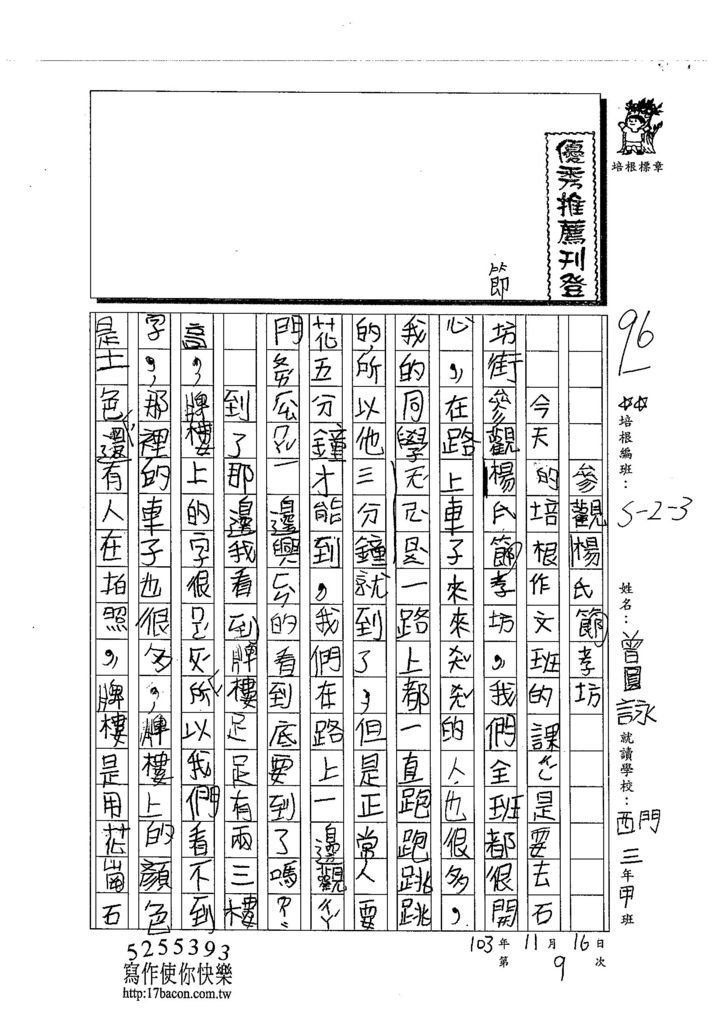 培根標章
優秀推薦刊登
節
96
培根編班：S-2-3
姓名：曾圓詠
就讀學校：西門三年甲班
103年11月16日
第9次
參觀楊氏節孝坊
今天的培根作文班的課ㄜ是要去石
坊街參觀楊氏節孝坊，我們全班都很開
心，在路上車子來來ㄤㄤ的人也很多，
我的同學是一路上都一直跑跑跳跳
的所以他三分鐘就到了，但是正常人要
花五分鐘才能到，我們在路上一邊觀
門一邊興ㄈㄣ的看到底要到了嗎？
到了那邊我看到牌樓足足有兩三樓
高，牌樓上的字很所以我們看不到
字，那裡的車子也很多，牌樓上的顏色
是土色還有人在拍照，牌樓是用花崗石
5255393
寫作使你快樂
http:17bacon.com.tw